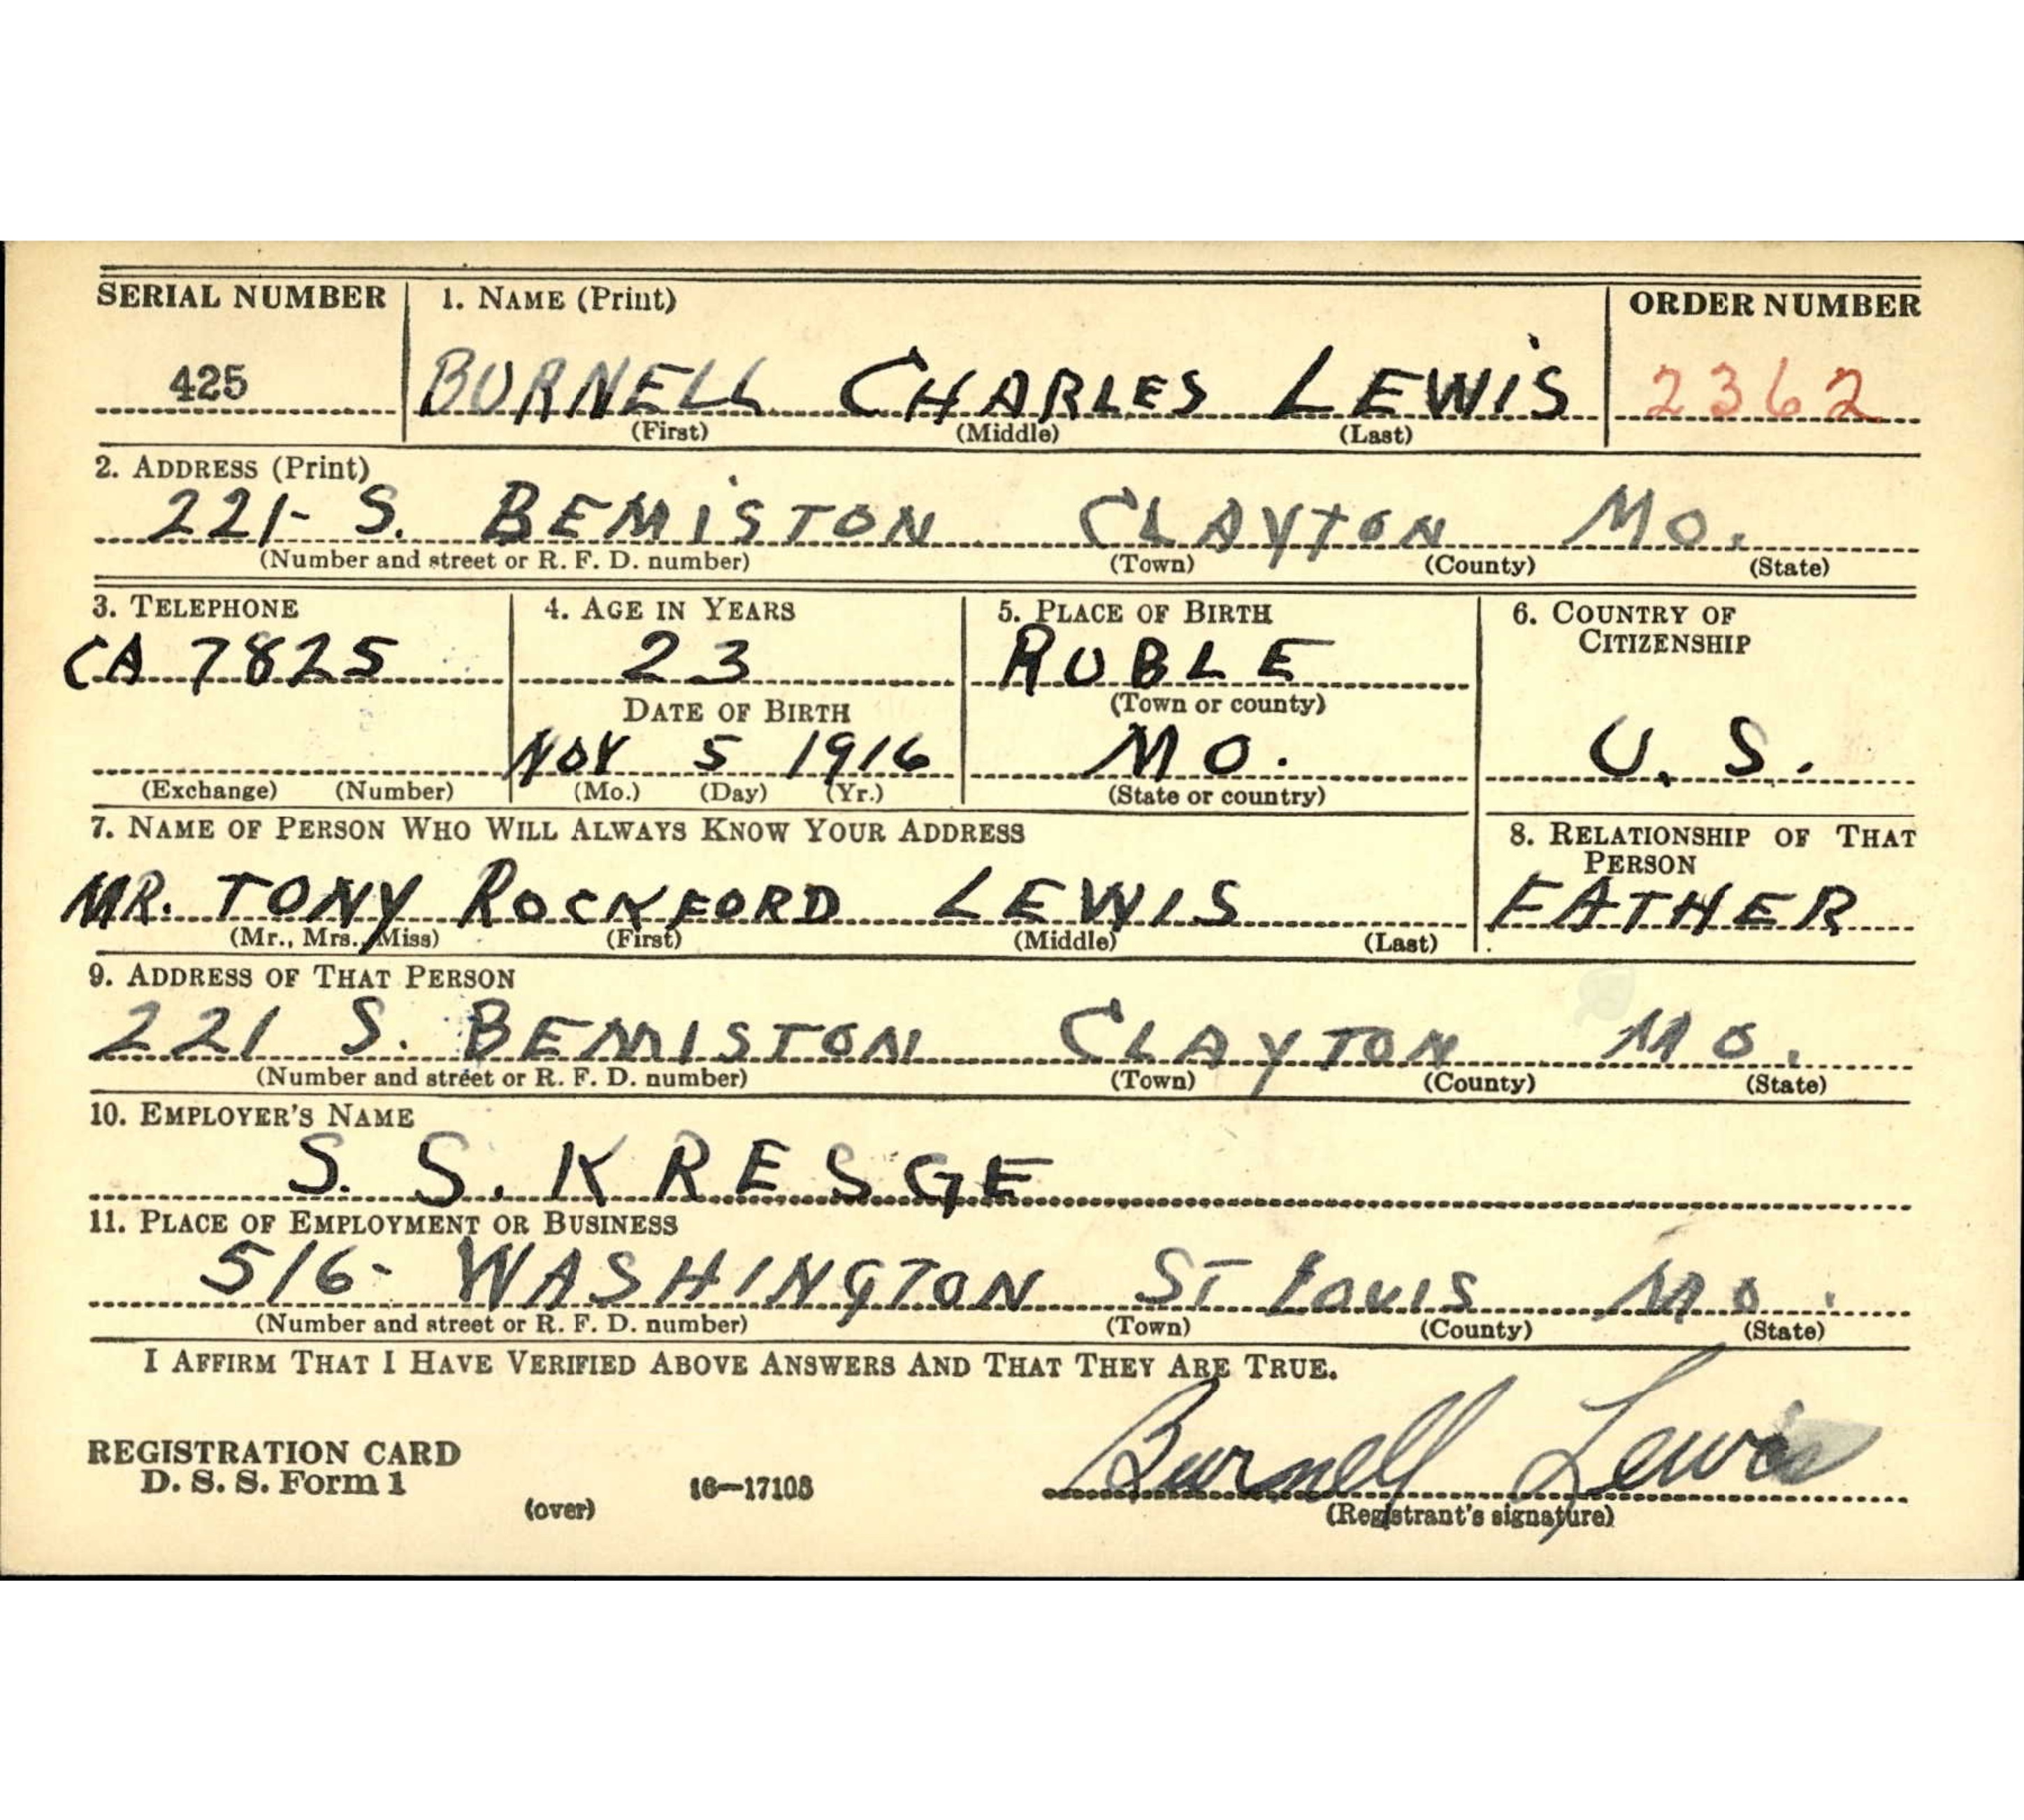 SERIAL NUMBER 1. NAME (Print) ORDER NUMBER
425 BURNELL CHARLES LEWIS 2362
(First) (Middle) (Last)
2. ADDRESS (Print)
221- S. BEMISTON CLAYTON MO.
(Number and street or R. F. D. number) (Town) (County) (State)
3. TELEPHONE 4. AGE IN YEARS 5. PLACE OF BIRTH 6. COUNTRY OF
CITIZENSHIP
CA 7825 23 RUBLE
DATE OF BIRTH (Town or county)
NOV 5 1916 MO. U. S.
(Exchange) (Number) (Mo.) (Day) (Yr.) (State or country)
7. NAME OF PERSON WHO WILL ALWAYS KNOW YOUR ADDRESS 8. RELATIONSHIP OF THAT
PERSON
MR. TONY ROCKFORD LEWIS FATHER
(Mr., Mrs., Miss) (First) (Middle) (Last)
9. ADDRESS OF THAT PERSON
221 S. BEMISTON CLAYTON MO.
(Number and street or R. F. D. number) (Town) (County) (State)
10. EMPLOYER'S NAME
S. S. KRESGE
11. PLACE OF EMPLOYMENT OR BUSINESS
516- WASHINGTON ST LOUIS MO.
(Number and street or R. F. D. number) (Town) (County) (State)
I AFFIRM THAT I HAVE VERIFIED ABOVE ANSWERS AND THAT THEY ARE TRUE.
REGISTRATION CARD Burnell Lewis
D. S. S. Form 1 (over) 16—17108 (Registrant's signature)